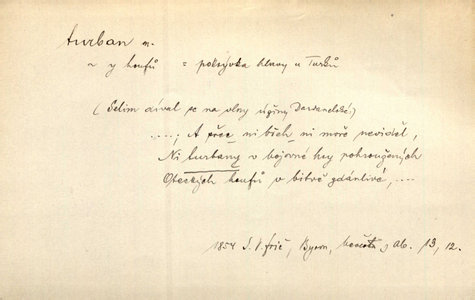 turban m.
~ y houfů = pokrývka hlavy u Turků
(Selim díval se na vlny úžiny Dardanelské:)
....; A přece ni břeh ni moře neviděl,
Ni turbany v bojovné hry pohroužených
Oteckých houfů v bitvě zdánlivé, ....
1854 J. V. Frič, Byron, nevěsta z Ab. 13, 12.